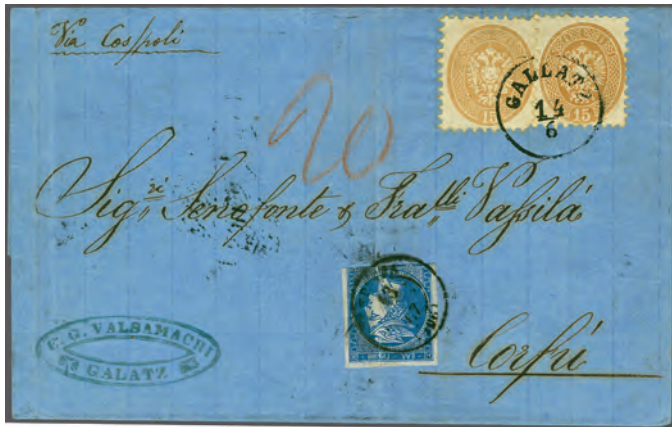 Via Cospoli
15
15
GALLATZ
14
6
20
Sig.ri Senofonte & Fra.lli Vassilá
C. G. VALSAMACHI
GALATZ
Corfú